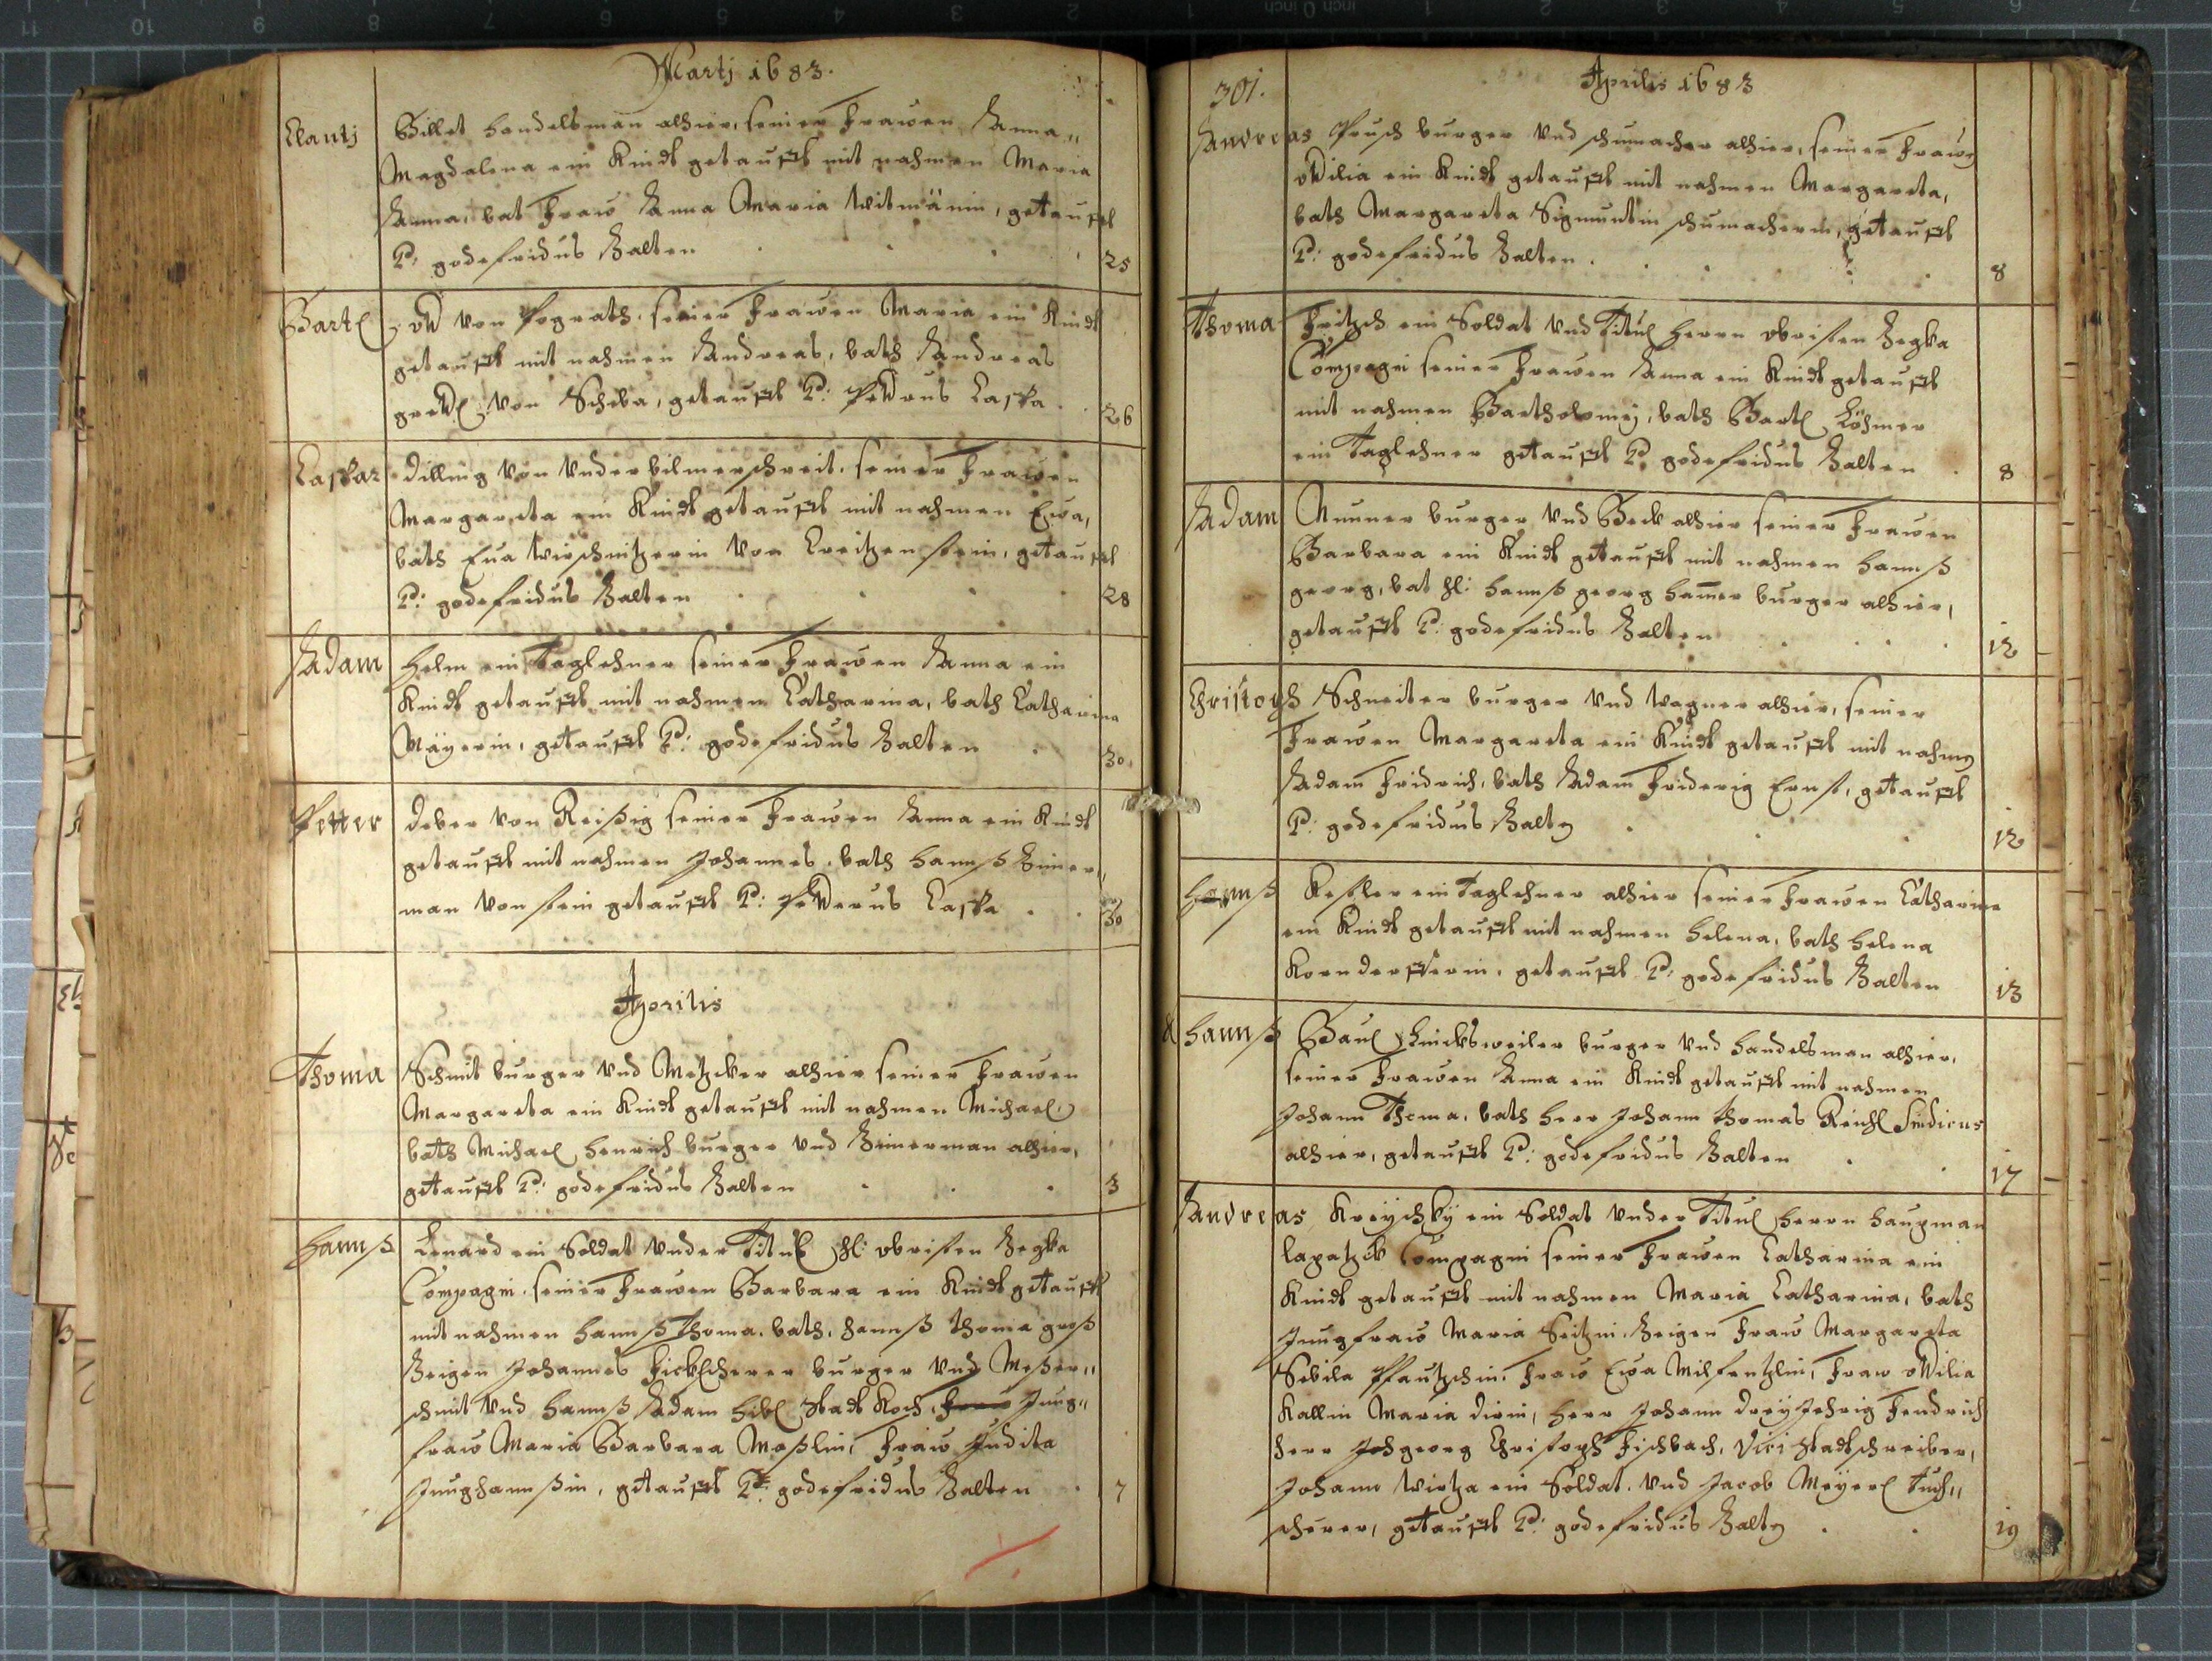 Martj 1683.
Clautj Billet handelsman alhier, seiner Frawen Anna„
Magdalena ein Kindt getaufft mit nahmen Maria
Anna, bat Fraw Anna Maria Witmänin, getaufft
P: godefridus Balten 25
Bartl ott von Pograth. seiner Frawen Maria ein Kindt
getaufft mit nahmen Andreas, bath Andreas
von Scheba, getaufft P: Petrus Caspa 26
Caspar Dilling von Underwilmerschreit. seiner Frawen
Margareta ein Kindt getaufft mit nahmen Eva,
bath Eua Wirschnitzerin von Kreitzenstein, getaufft
P: godefridus Balten 28
Adam Helm ein Taglehner seiner Frawen Anna ein
Kindt getaufft mit nahmen Catharina, bath Catharina
Mäyerin, getaufft P: godefridus Balten 30
Petter Deber von Reißig seiner Frawen Anna ein Kindt
getaufft mit nahmen Johannes. bath Hannß Zimer„
man von stein getaufft P: Petterus Caspa 30
Aprilis
Thoma Schmit burger und Metzcker alhier seiner Frawen
Margareta ein Kindt getaufft mit nahmen Michael
bath Michael Henrich burger und Zimerman alhier,
getaufft P: godefridus Balten 3
Hannß Lenard ein Soldat under Titul Hl: obristen Zegka
Compagni seiner Frawen Barbara ein Kindt getaufft
mit nahmen Hannß Thoma. bath, Hannß Thoma groß
Zeigen Johannes burger und Meßer„
schmit und Hannß Adam Hibl Stadt Koch, Fraw Jung„
fraw Maria Barbara Moßlin, Fraw Judita
Junghannßin, getaufft P: godefridus Balten 7
301. Aprilis 1683
Andreas Prusch burger und schumacher alhier, seiner Frawen
ottilia ein Kindt getaufft mit nahmen Margareta,
bath Margareta Sigmuntin schumacherin, getaufft
P: godefridus Balten 8
Thoma Fritzsch ein Soldat und Titul Herrn obristen Zegka
Compagni seiner Frawen Anna ein Kindt getaufft
mit nahmen Bartholomej, bath Bartl Löhner
ein Taglehner getaufft P godefridus Balten 8
Adam Nunner burger und Beck alhier seiner Frawen
Barbara ein Kindt getaufft mit nahmen Hannß
georg, bat Hl: Hannß georg Hamer burger alhier,
getaufft P: godefridus Balten 12
Christoph Schneiter burger und Wagner alhier, seiner
Frawen Margareta ein Kindt getaufft mit nahmen
Adam Fridrich, bath Adam Friderig Ernst, getaufft
P: godefridus Balten 12
Hannß Keßler ein Taglehner alhier seiner Frawen Catharina
ein Kindt getaufft mit nahmen Helena, bath Helena
getaufft P: godefridus Balten 13
Hannß Baul burger und Handelsman alhier,
seiner Frawen Anna ein Kindt getaufft mit nahmen
Johann Thoma, bath Herr Johann Thomas Reichl Sindicus
alhier, getaufft P: godefridus Balten 17
Andreas Kreyschky ein Soldat under Titul Herrn Haupman
lapatzck Compagni seiner Frawen Catharina ein
Kindt getaufft mit nahmen Maria Catharina, bath
Jungfraw Maria Seitzin. Zeigen Fraw Margareta
Sebila Pfautzschin. Fraw Eva Fraw ottilia
Kallin Maria Dirin, Herr Johann Dreyjehrig Fendrich
Herr Joh georg Christoph Fischbach, Vici Stadtschreiber,
Johann Wirtza ein Soldat. und Jacob Meyerl Tuch„
scherer, getaufft P: godefridus Balten 19